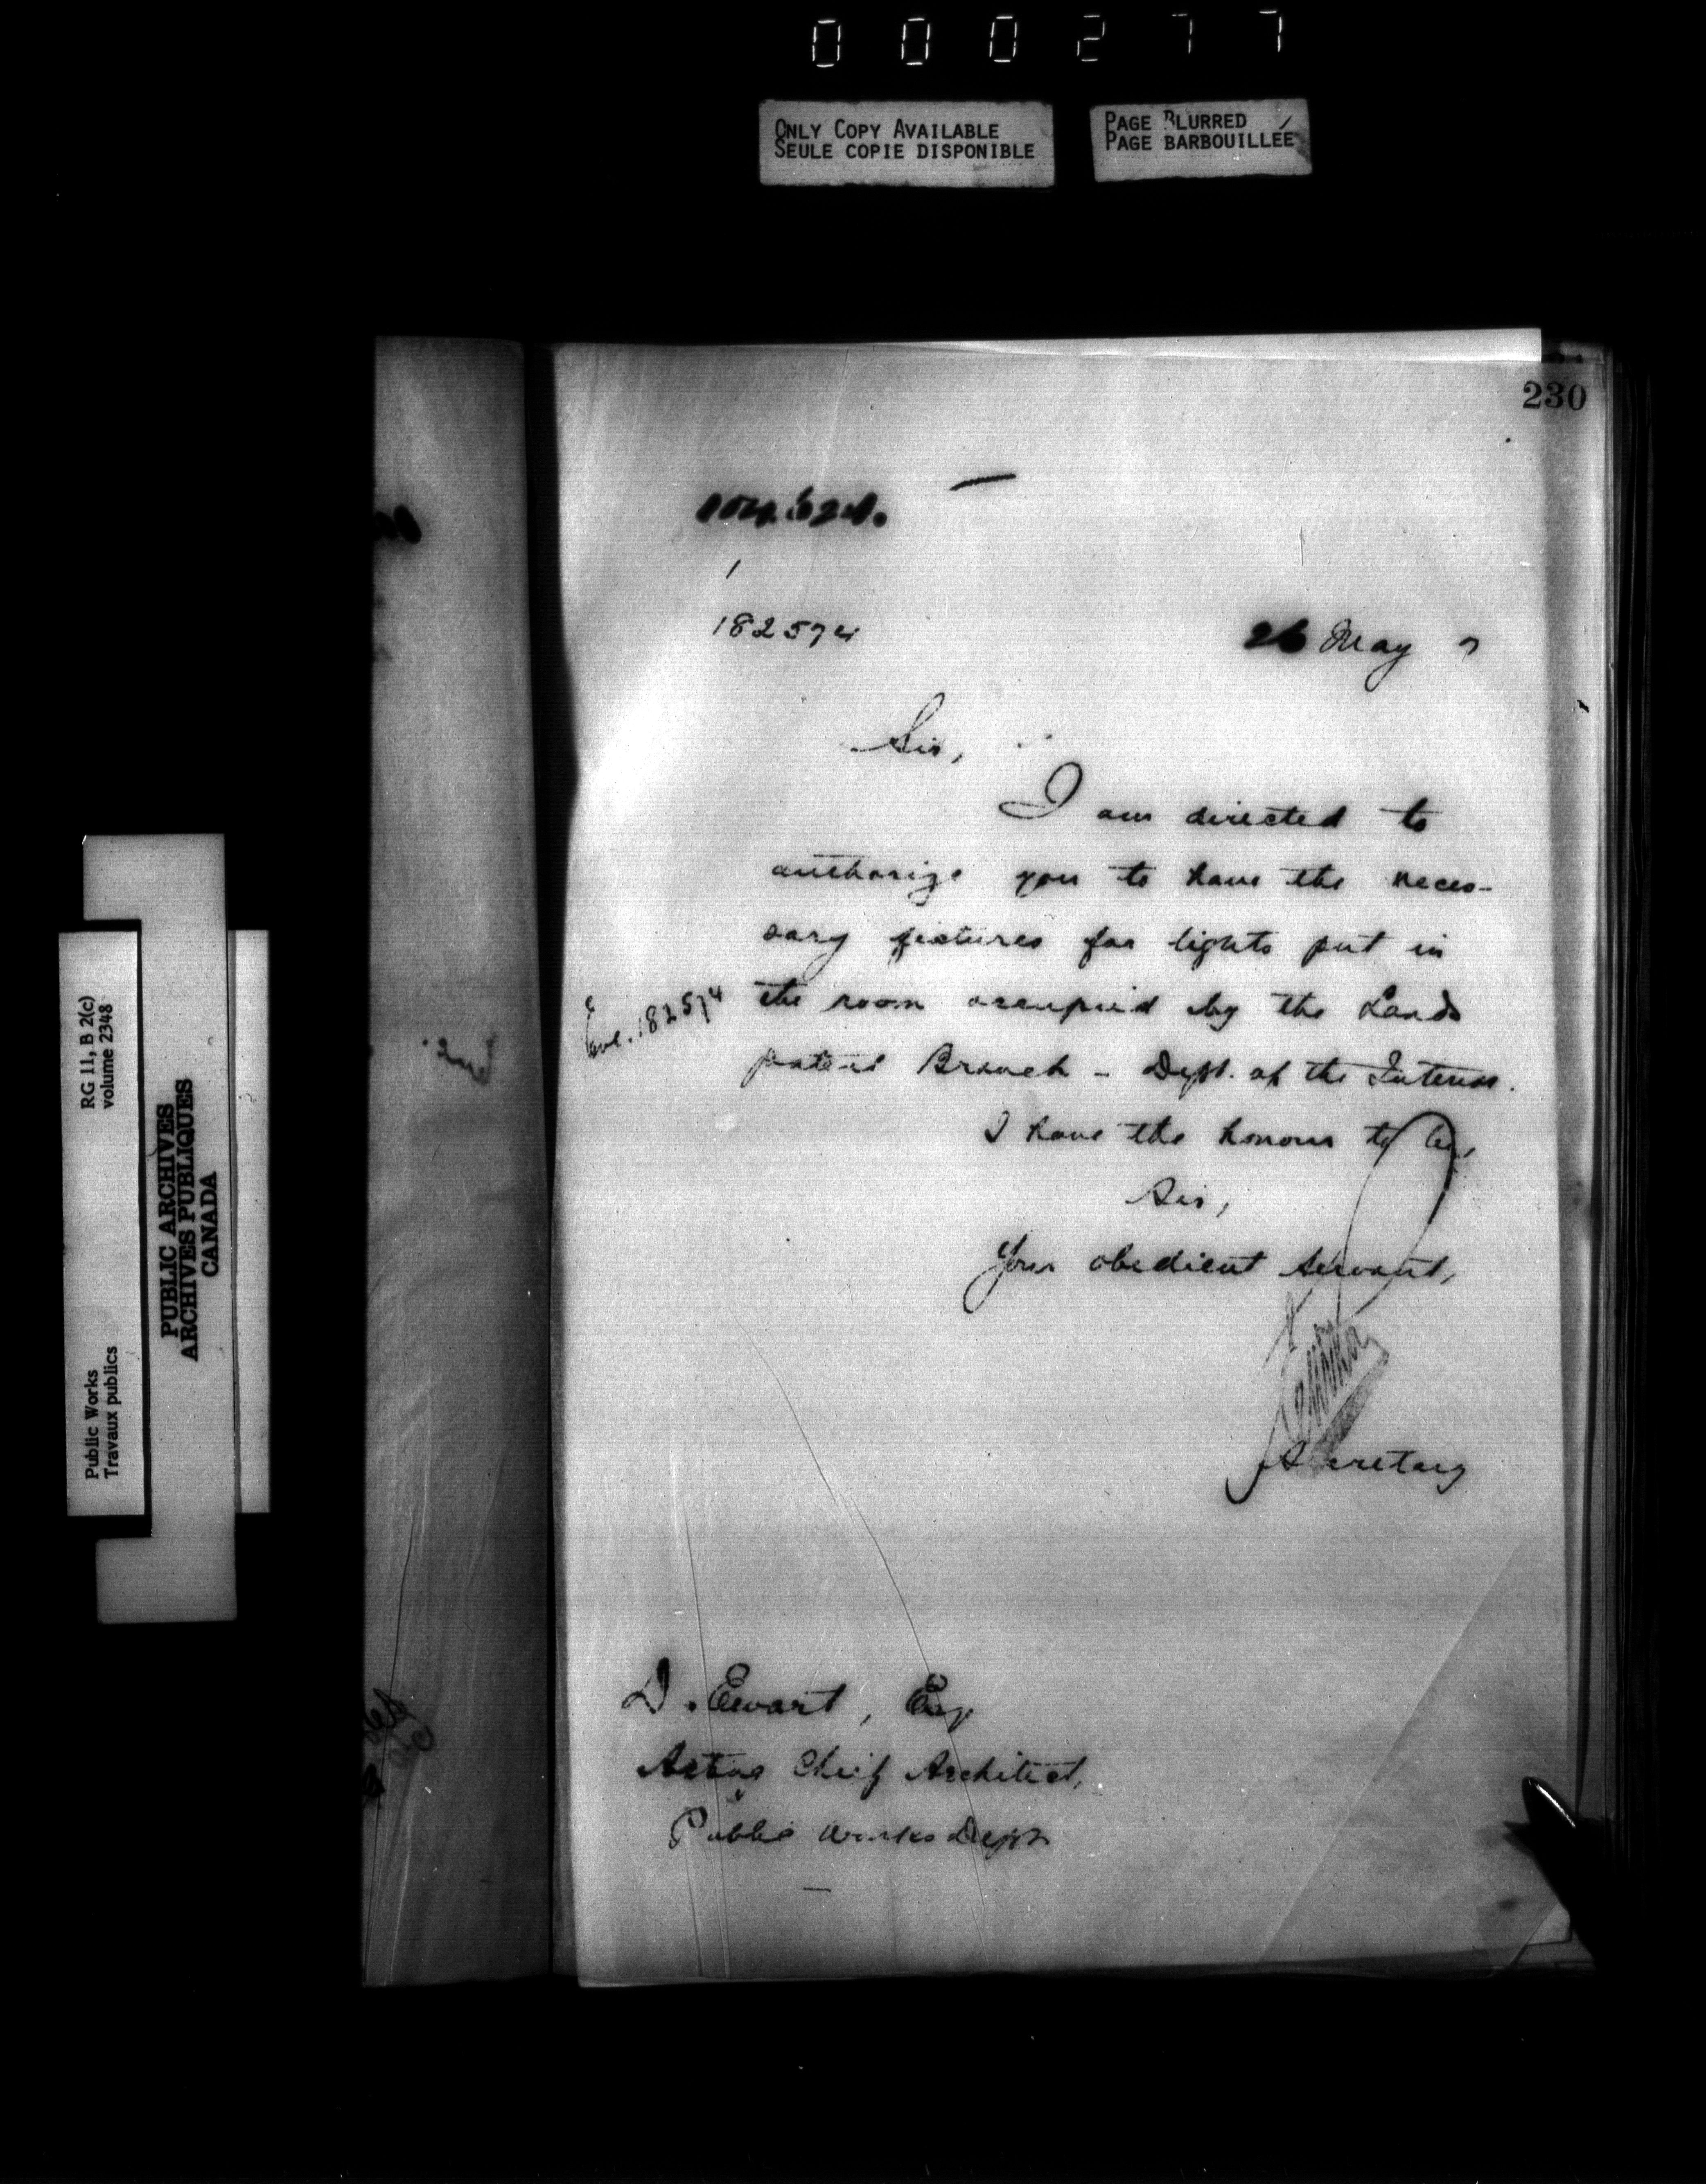 000277
ONLY COPY AVAILABLE
SEULE COPIE DISPONIBLE
PAGE BLURRED
PAGE BARBOUILLÉE
RG 11, B 2(c)
volume 2348
Public Works
Travaux publics
PUBLIC ARCHIVES
ARCHIVES PUBLIQUES
CANADA
230
182574
26 May 7
Sir,
I am directed to
authorize you to have the neces-
sary fixtures for lights put in
the room occupied by the Lands
patent Branch - Dept. of the Interior.
Encl. 182574
I have the honour to be,
Sir,
Your obedient servant,
Secretary
D. Ewart, Esq
Acting Chief Architect,
Public Works Dept